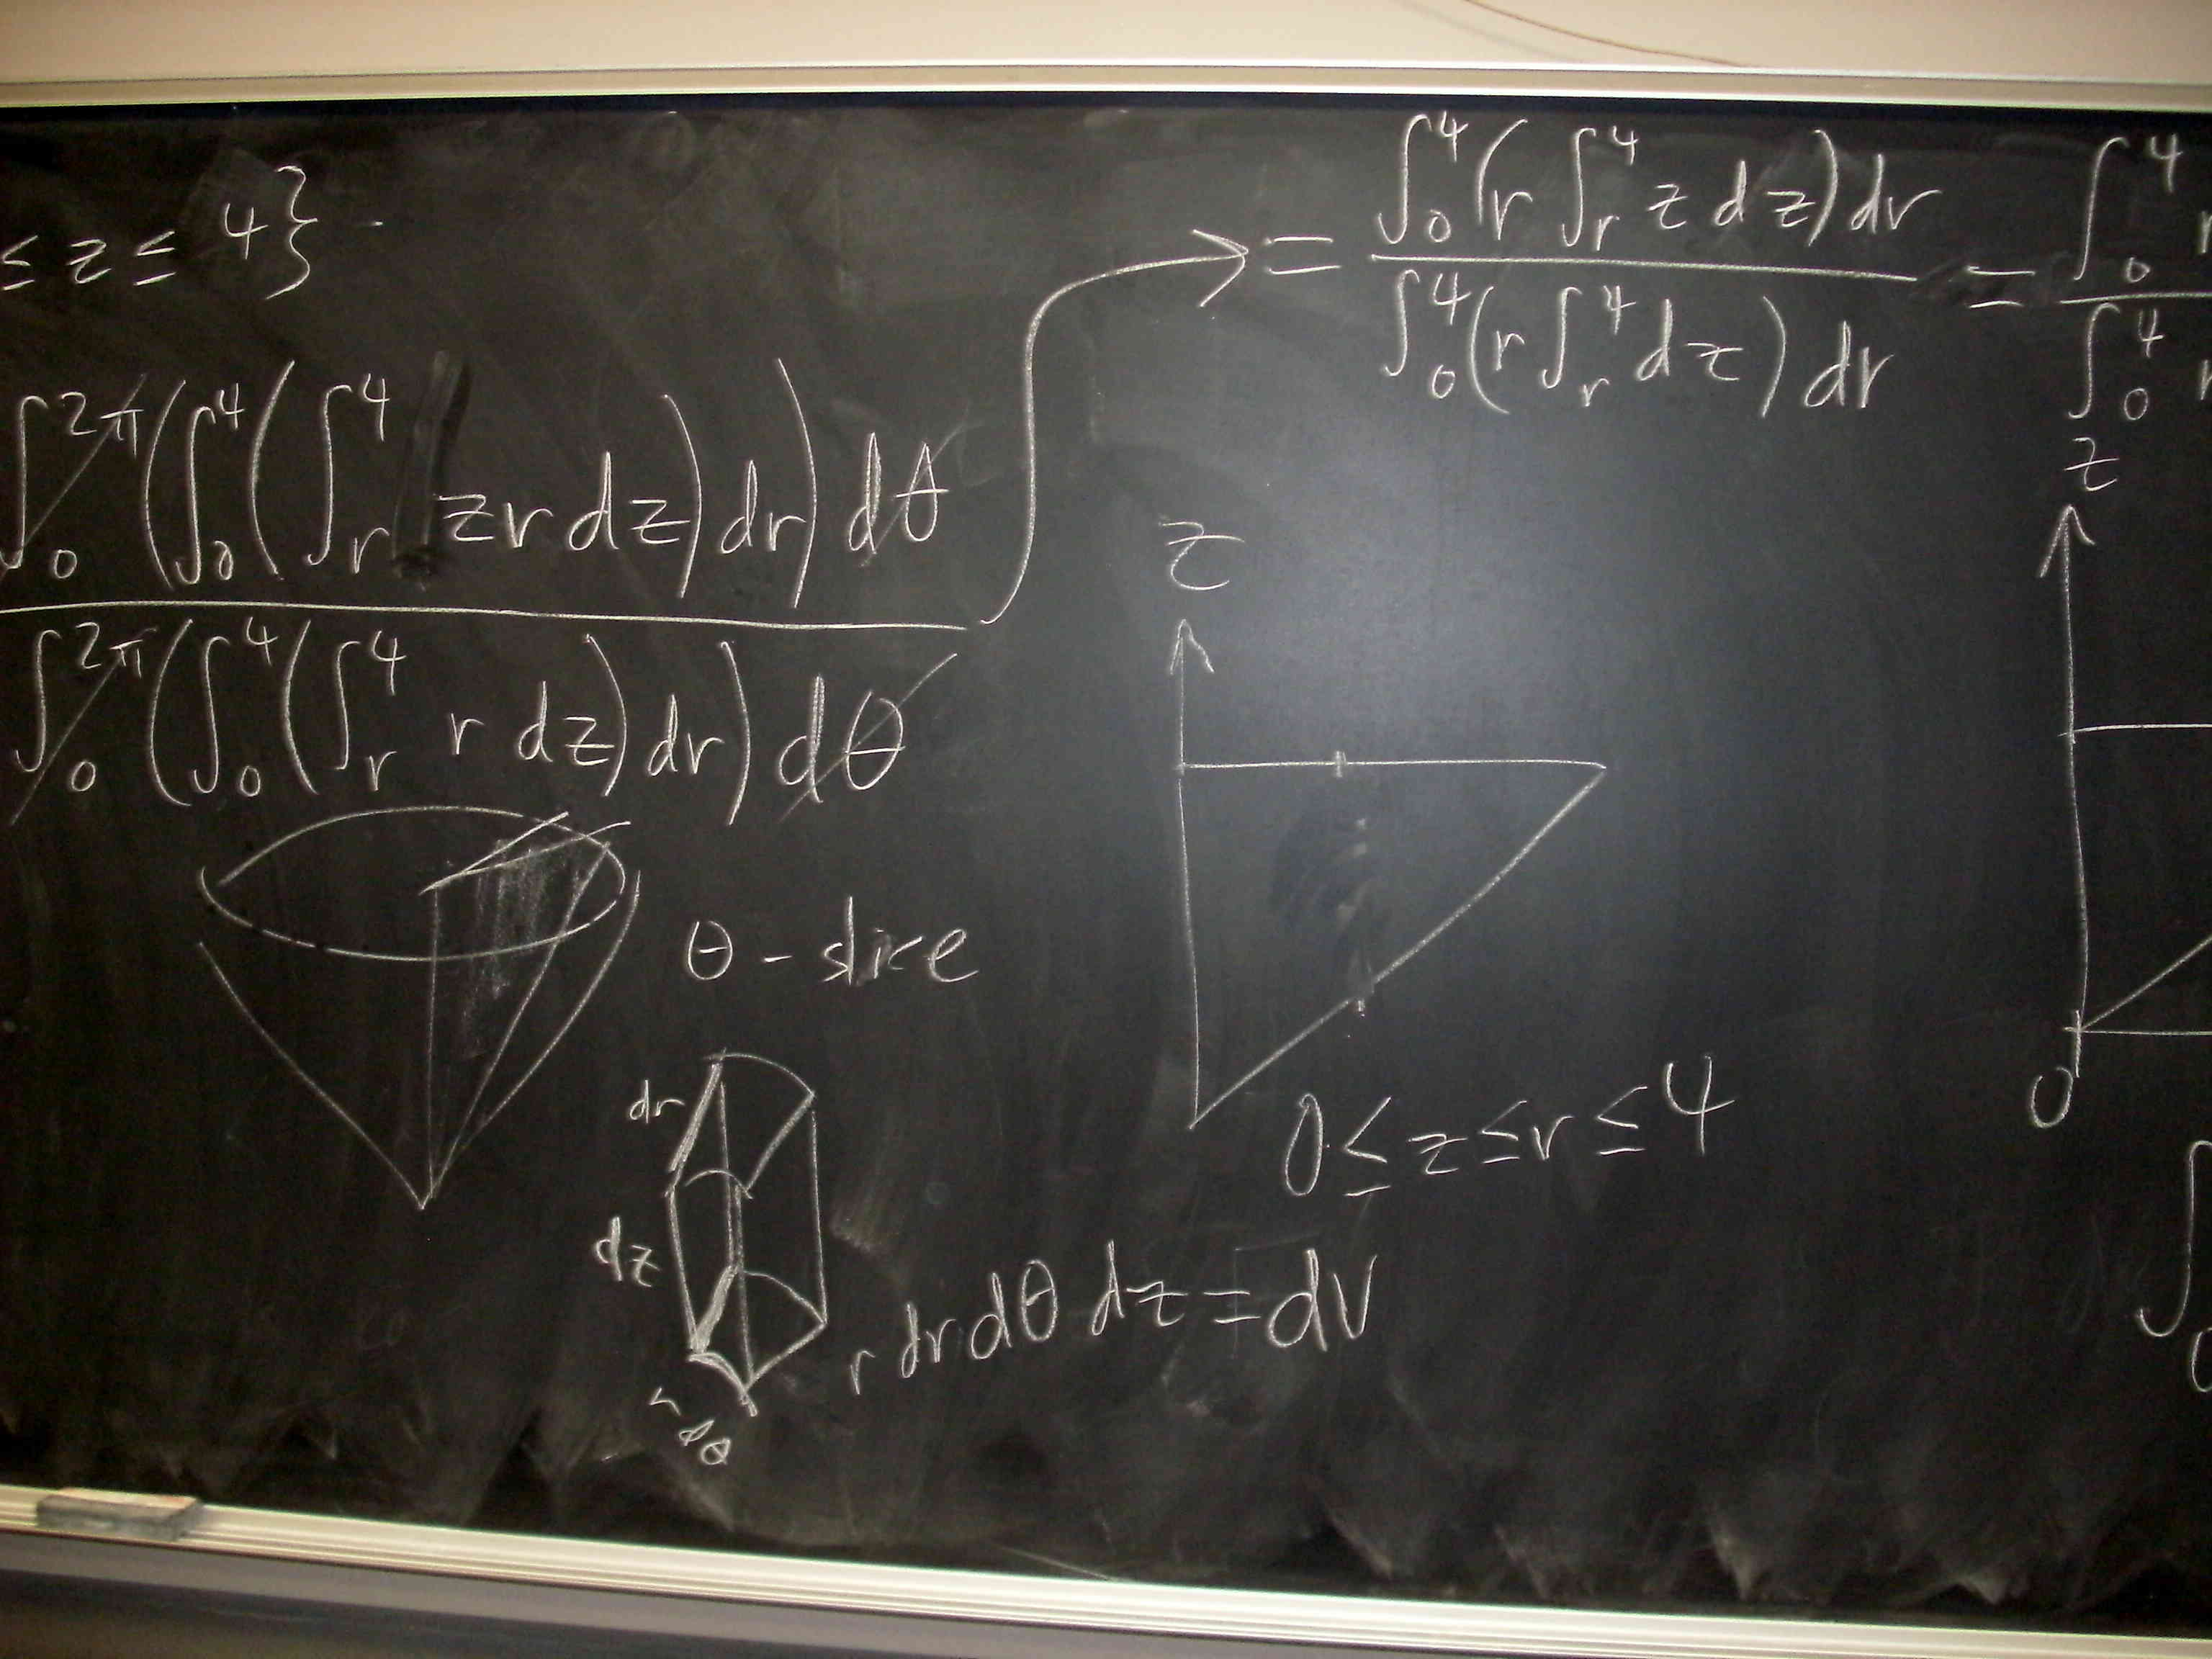 ≤ z ≤ 4}.
∫₀^2π (∫₀⁴ (∫ᵣ⁴ zr dz) dr) dθ
∫₀^2π (∫₀⁴ (∫ᵣ⁴ r dz) dr) dθ
= ∫₀⁴ (r ∫ᵣ⁴ z dz) dr
∫₀⁴ (r ∫ᵣ⁴ dz) dr
= ∫₀⁴ r
∫₀⁴ r
z
z
θ - slice
dr
dz
r dθ
r dr dθ dz = dV
0 ≤ z ≤ r ≤ 4
0
∫₀